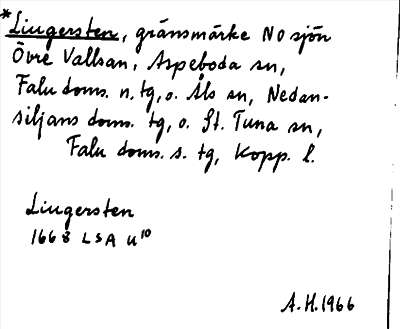 *Liugersten, gränsmärke NO sjön
Övre Vallsan, Aspeboda sn,
Falu doms. n. tg, o. Åls sn, Nedan-
siljans doms. tg, o. St. Tuna sn,
Falu doms. s. tg, Kopp. l.
Liugersten
1668 LSA U10
A.H. 1966